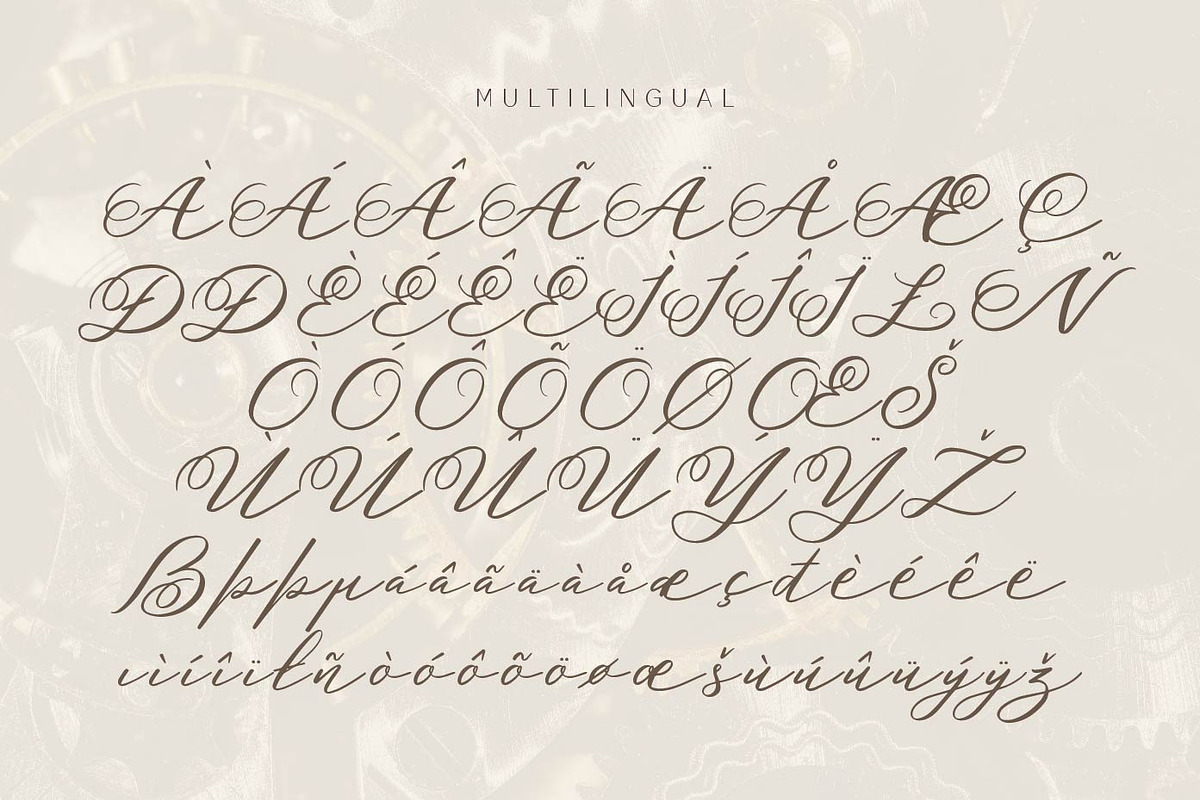 MULTILINGUAL
ÀÁÂÃÄÅÆÇ
ĐÐÈÉÊËÌÍÎÏŁÑ
ÒÓÔÕÖØŒŠ
ÙÚÛÜÝŸŽ
ßþþµáâãäàåæçđèéêë
ıìíîïłñòóôõöøœšùúûüýÿž